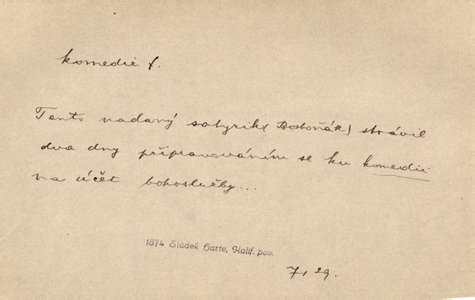 komedie f.
Tento nadaný satyrik (Bostoňák) strávil
dva dny připravováním se ku komedii
na účet bohoslužby...
1874 Sládek Harte, Kalif. pov.
7, 29.